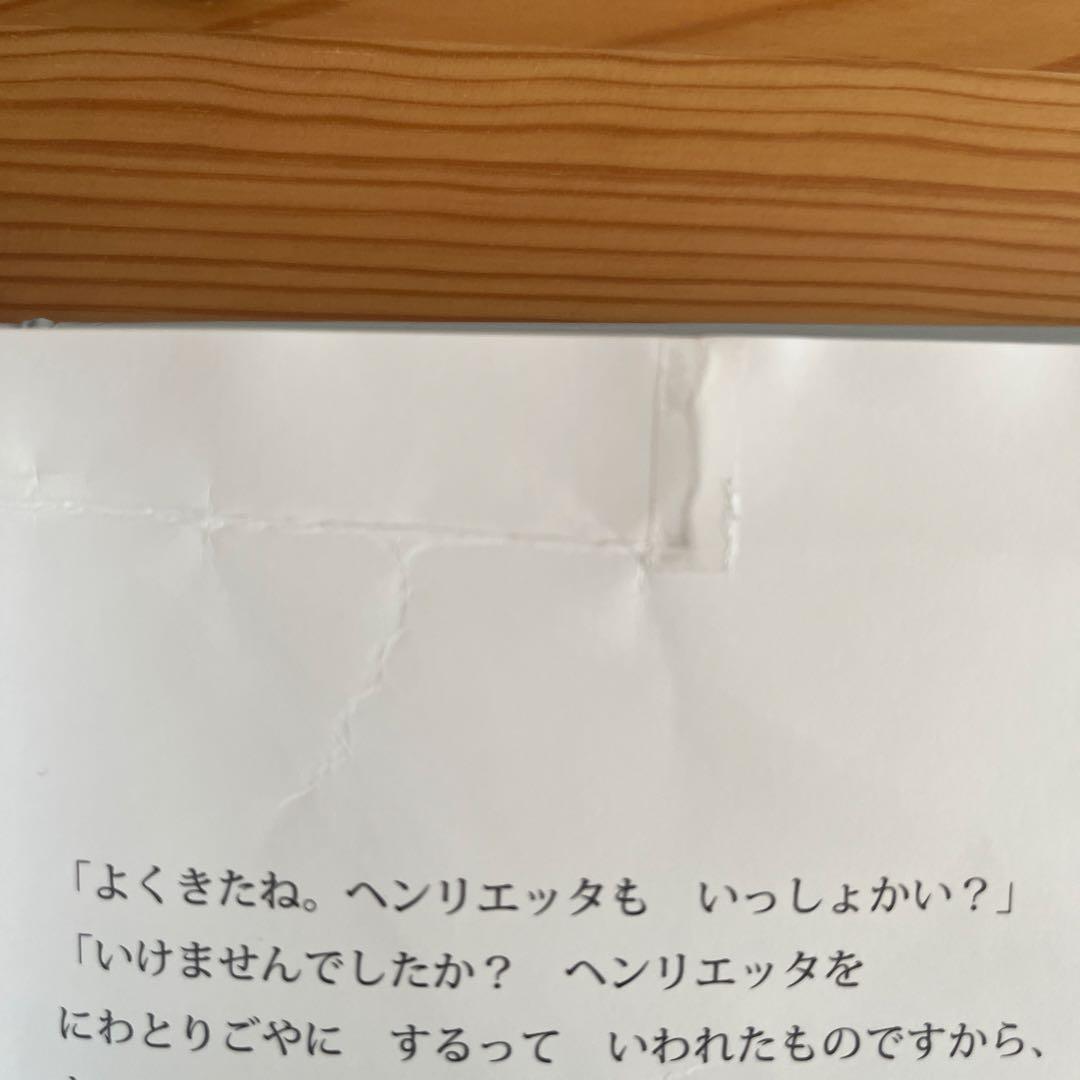 「よくきたね。ヘンリエッタも　いっしょかい？」
「いけませんでしたか？　ヘンリエッタを
にわとりごやに　するって　いわれたものですから、